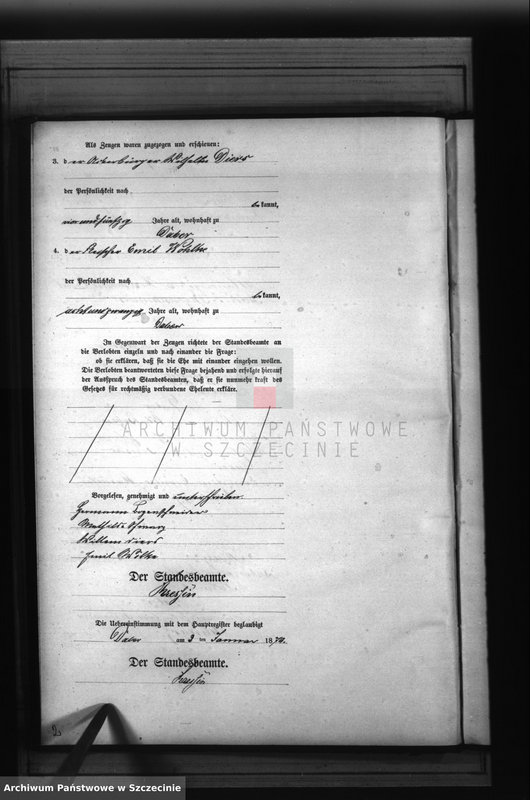 Als Zeugen waren zugezogen und erschienen:
3. der Ackerbürger Diers
der Persönlichkeit nach
bekannt,
vierundfünfzig Jahre alt, wohnhaft zu
Daber
4. der Emil Wohlke
der Persönlichkeit nach
bekannt,
achtundzwanzig Jahre alt, wohnhaft zu
Daber
In Gegenwart der Zeugen richtete der Standesbeamte an
die Verlobten einzeln und nach einander die Frage:
ob sie erklären, daß sie die Ehe mit einander eingehen wollen.
Die Verlobten beantworteten diese Frage bejahend und erfolgte hierauf
der Ausspruch des Standesbeamten, daß er sie nunmehr kraft des
Gesetzes für rechtmäßig verbundene Eheleute erkläre.
ARCHIWUM PAŃSTWOWE
W SZCZECINIE
Vorgelesen, genehmigt und unterschrieben
Hermann
Mathilde
Diers
Emil
Der Standesbeamte.
Die Uebereinstimmung mit dem Hauptregister beglaubigt
Daber am 3 ten Januar 18
Der Standesbeamte.
Archiwum Państwowe w Szczecinie